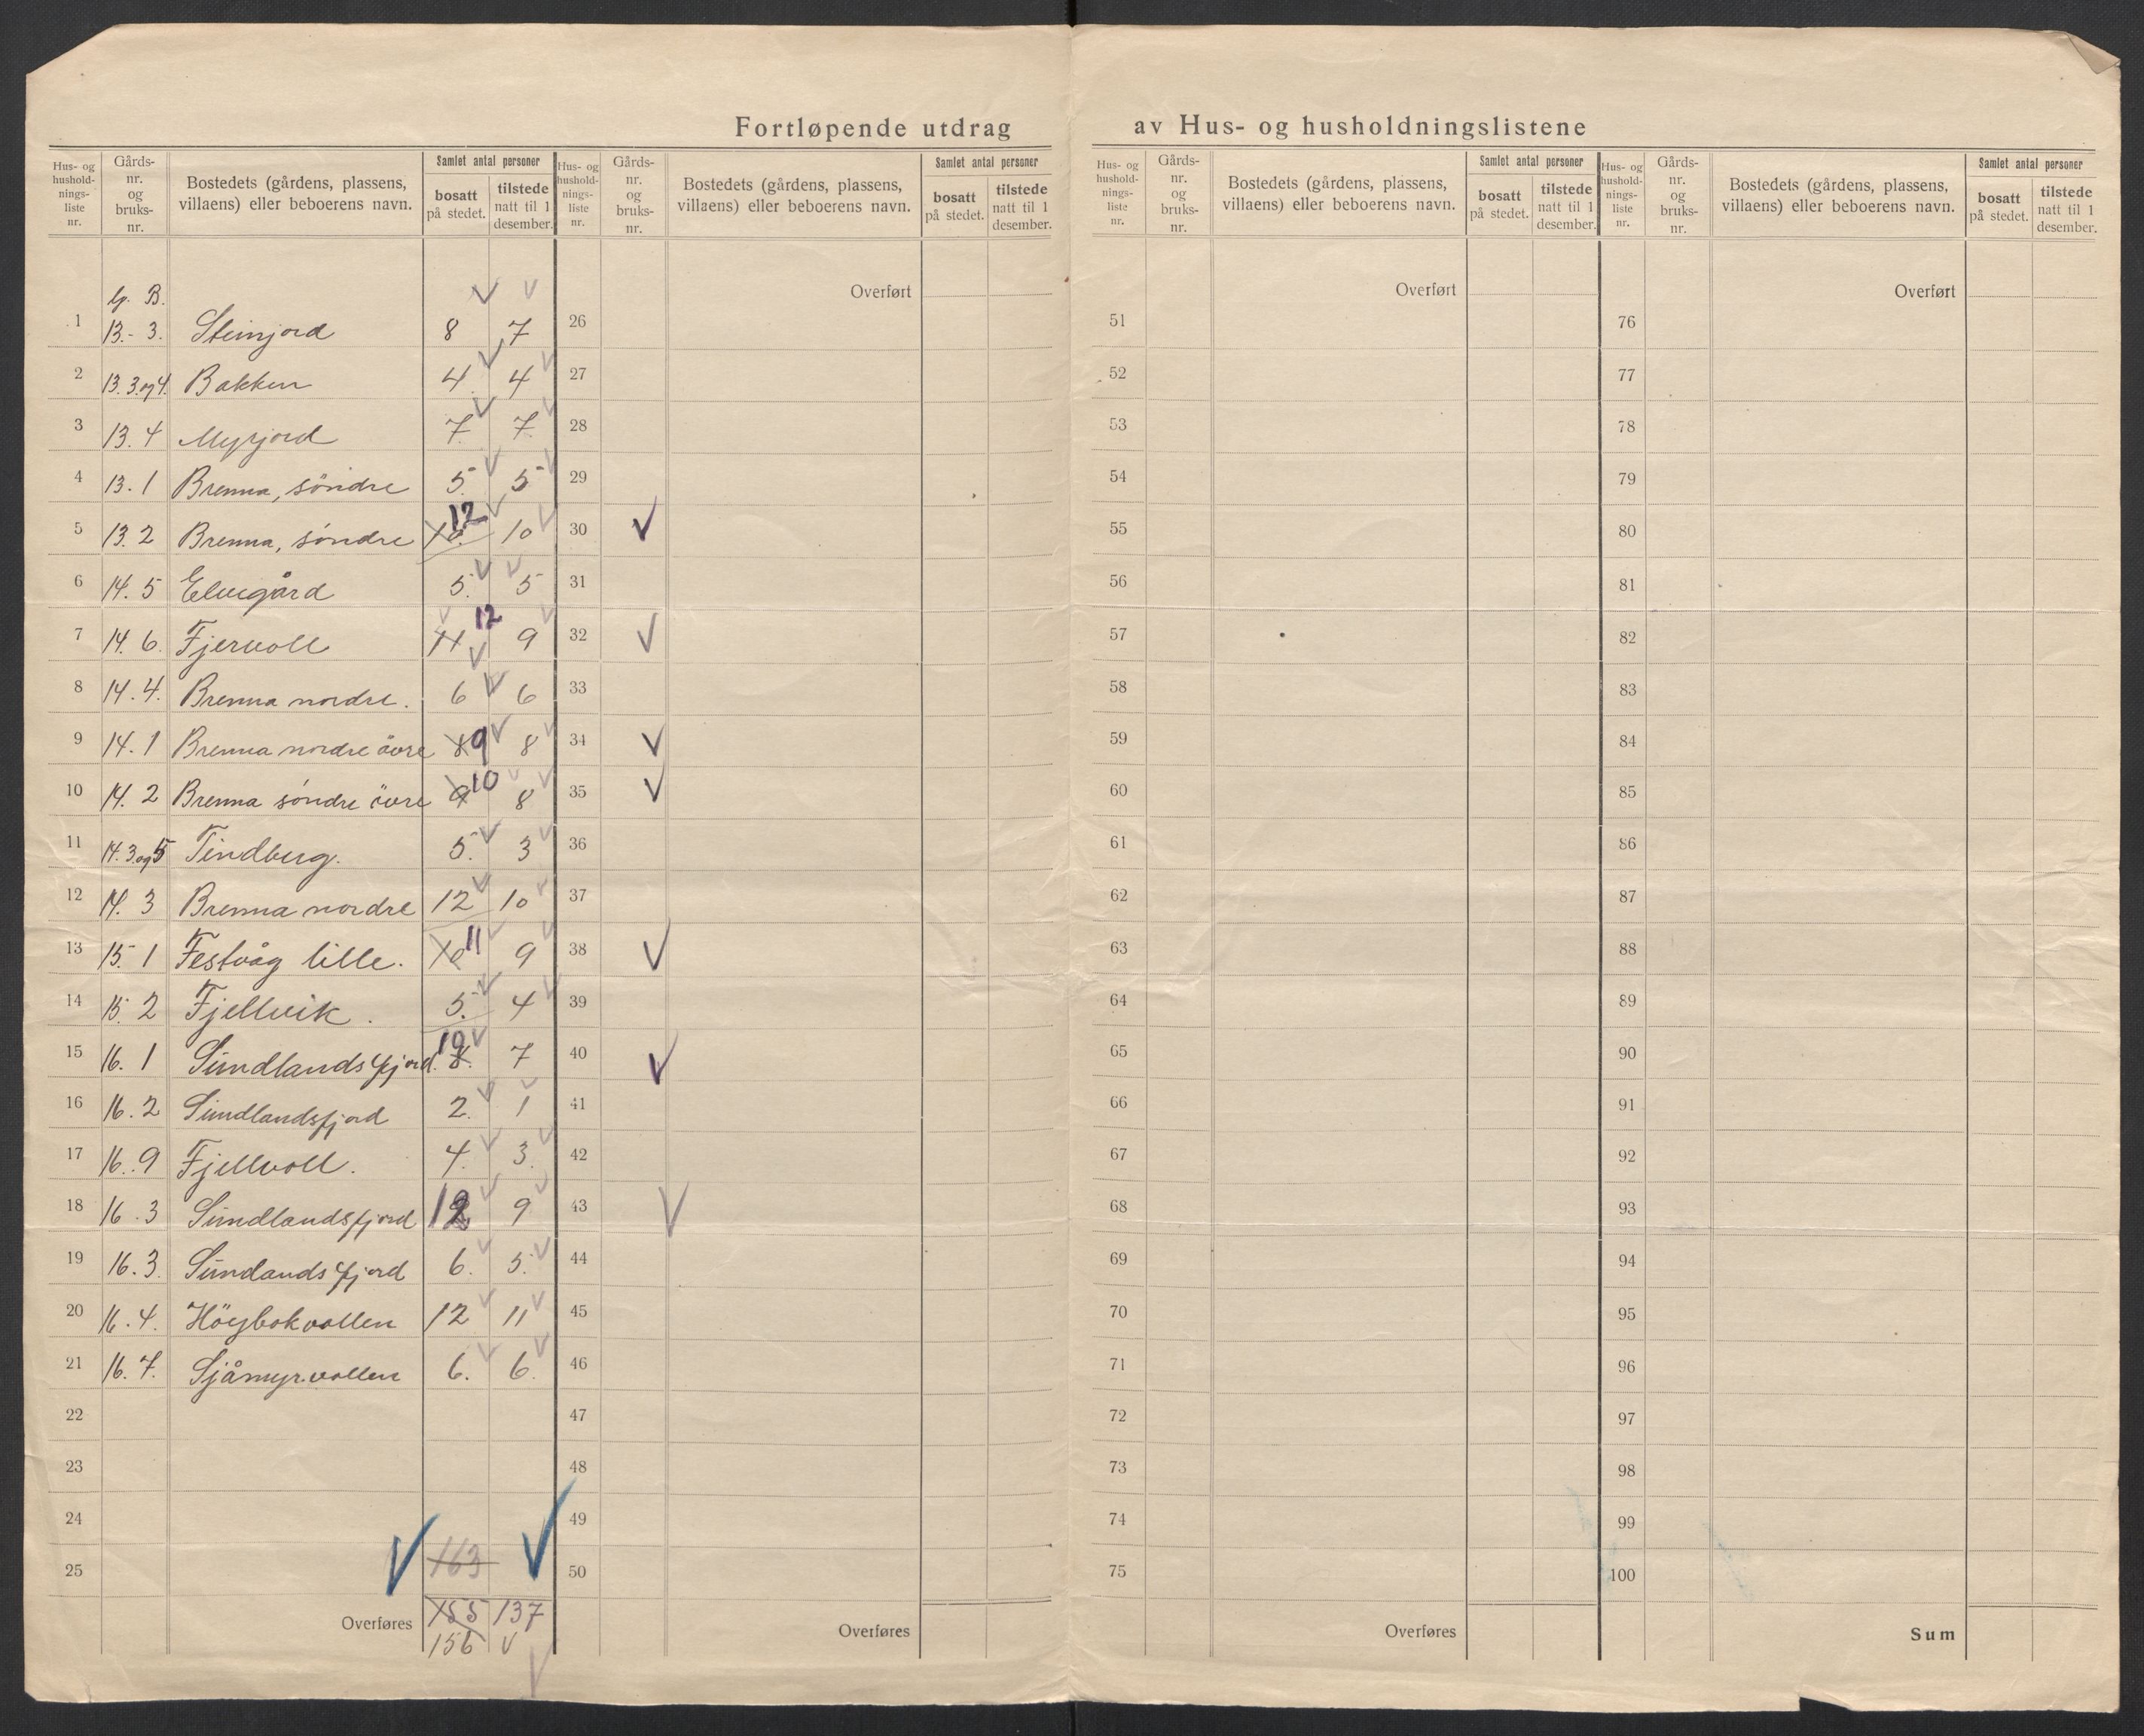 Fortløpende utdrag av Hus- og husholdningslistene
Hus- og hushold-nings-liste nr. | Gårds-nr. og bruks-nr. | Bostedets (gårdens, plassens, villaens) eller beboerens navn. | Samlet antal personer | bosatt på stedet. | tilstede natt til 1 desember.
Hus- og hushold-nings-liste nr. | Gårds-nr. og bruks-nr. | Bostedets (gårdens, plassens, villaens) eller beboerens navn. | Samlet antal personer | bosatt på stedet. | tilstede natt til 1 desember.
Hus- og hushold-nings-liste nr. | Gårds-nr. og bruks-nr. | Bostedets (gårdens, plassens, villaens) eller beboerens navn. | Samlet antal personer | bosatt på stedet. | tilstede natt til 1 desember.
Hus- og hushold-nings-liste nr. | Gårds-nr. og bruks-nr. | Bostedets (gårdens, plassens, villaens) eller beboerens navn. | Samlet antal personer | bosatt på stedet. | tilstede natt til 1 desember.
G. B. ✓ ✓
1 13.- 3. Steinjord 8 7
2 13. 3 og 4. Bakken 4 4
3 13. 4 Myrjord 7. 7.
4 13. 1 Brenna, söndre 5. 5
5 13. 2 Brenna, söndre 10. 12 10
6 14. 5 Elvegård 5. 5
7 14. 6. Fjervoll 11 12 9
8 14. 4. Brenna nordre. 6 6
9 14. 1 Brenna nordre övre 8 9 8
10 14. 2 Brenna söndre övre 9 10 8
11 14. 3 og 5 Tindberg. 5. 3
12 14. 3 Brenna nordre 12 10
13 15. 1 Festvåg lille. 10 11 9
14 15. 2 Fjellvik. 5. 4
15 16. 1 Sundlandsfjord. 8. 10 7
16 16. 2 Sundlandsfjord 2. 1
17 16. 9 Fjellvoll. 4. 3.
18 16. 3 Sundlandsfjord 12 9
19 16. 3. Sundandsfjord 6. 5.
20 16. 4. Höybakvollen 12 11
21 16. 7. Sjåmyrvollen 6. 6.
22
23
24
25 163
Overføres 155 137
156 ✓
Overført
26
27
28
29
30 ✓
31
32 ✓
33
34 ✓
35 ✓
36
37
38 ✓
39
40 ✓
41
42
43 ✓
44
45
46
47
48
49
50
Overføres
Overført
51
52
53
54
55
56
57
58
59
60
61
62
63
64
65
66
67
68
69
70
71
72
73
74
75
Overføres
Overført
76
77
78
79
80
81
82
83
84
85
86
87
88
89
90
91
92
93
94
95
96
97
98
99
100
Sum